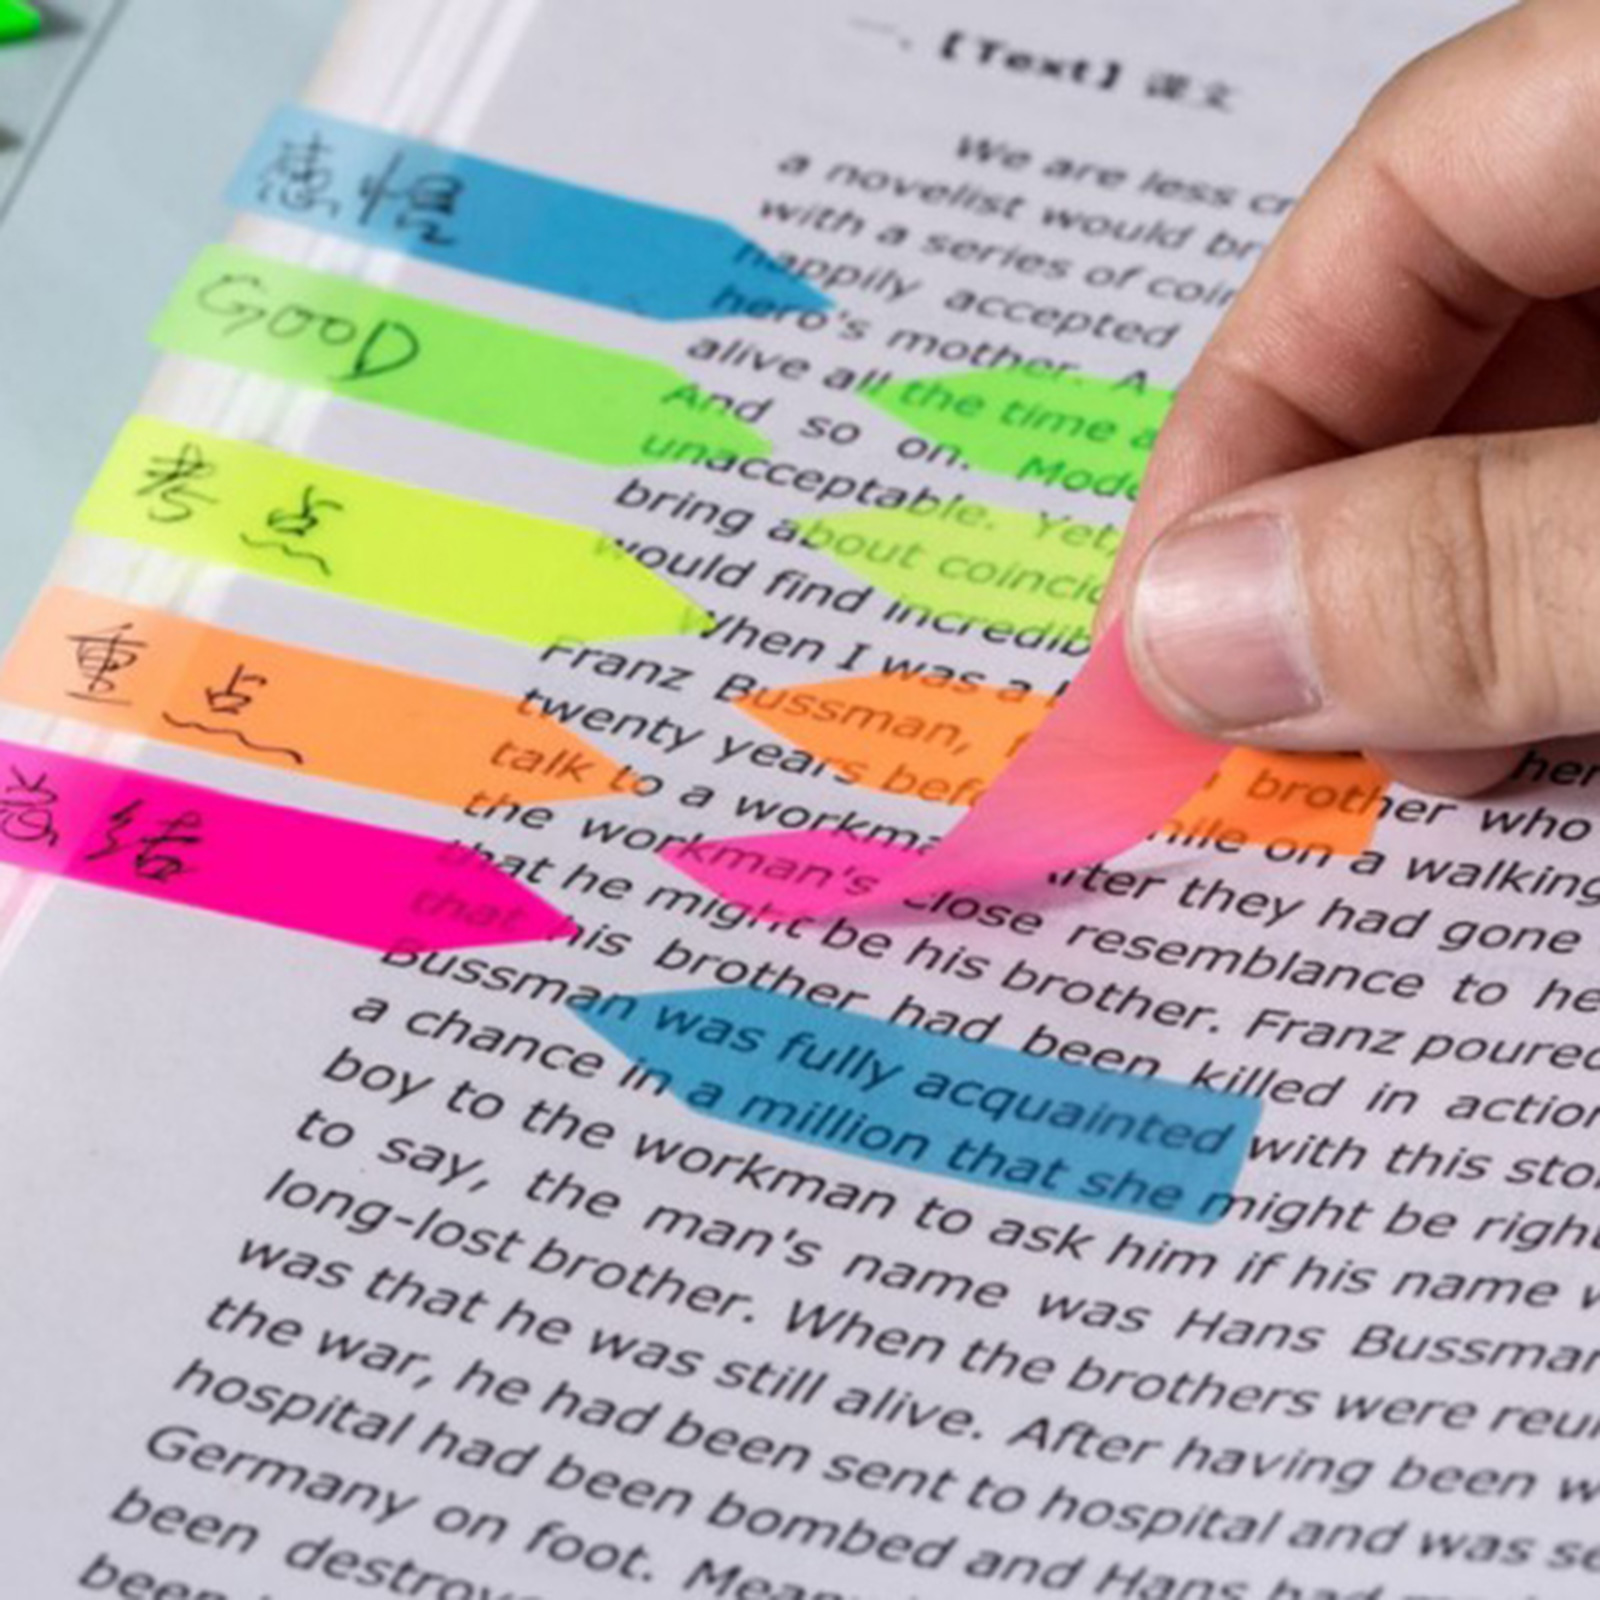 一、【Text】课文
We are less cr
a novelist would br
with a series of coin
happily accepted
hero's mother. A
alive all the time a
And so on. Mode
unacceptable. Yet,
bring about coincid
would find incredib
When I was a
Franz Bussman, brother who
twenty years befo while on a walking
talk to a workma After they had gone
the workman's close resemblance to he
that he might be his brother. Franz poured
that his brother had been killed in action
Bussman was fully acquainted with this stor
a chance in a million that she might be right
boy to the workman to ask him if his name w
to say, the man's name was Hans Bussman
long-lost brother. When the brothers were reun
was that he was still alive. After having been w
the war, he had been sent to hospital and was se
hospital had been bombed and Hans had
Germany on foot.
been destroy
been
感悟
GOOD
考点
重点
总结